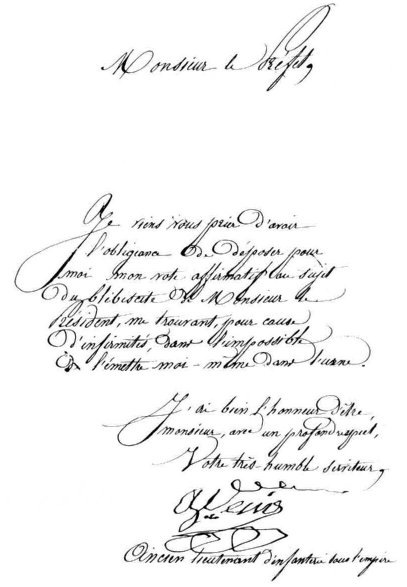 Monsieur le Préfet,
Je viens vous prier d'avoir
l'obligeance de déposer pour
moi mon vote affirmatif au sujet
du plébiscite de Monsieur le
Président, me trouvant, pour cause
d'infirmités, dans l'impossible
de l'émettre moi-même dans l'urne.
J'ai bien l'honneur d'être,
monsieur, avec un profond respect,
Votre très humble serviteur,
Ancien lieutenant d'infanterie sous l'empire